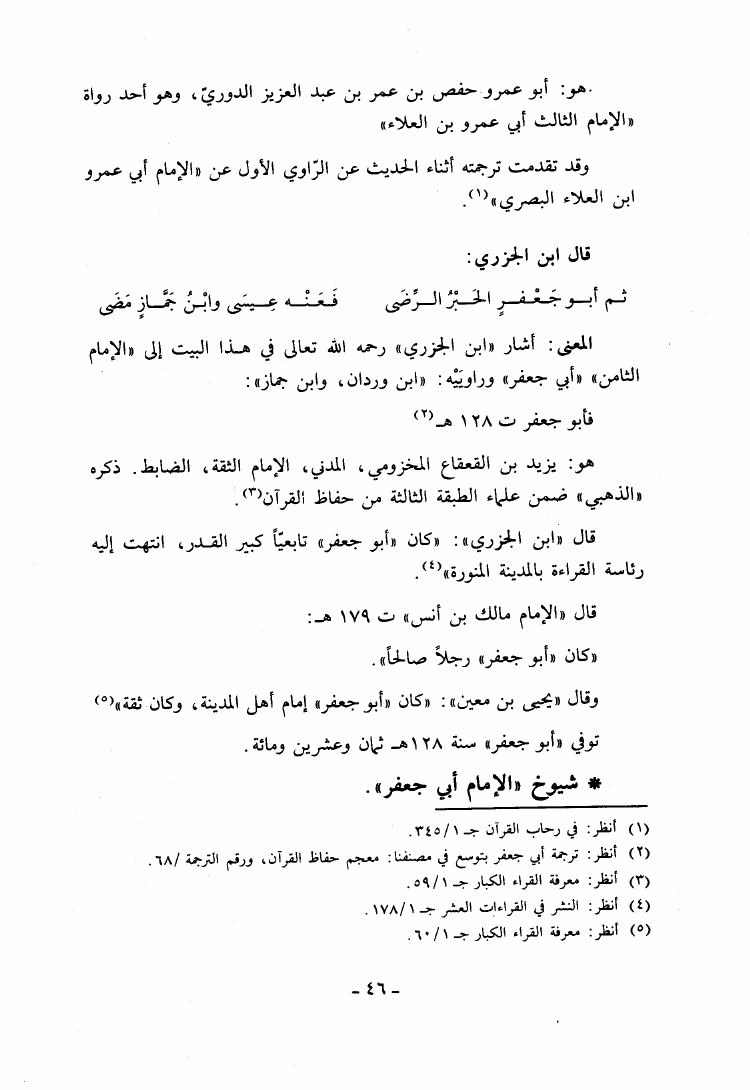 هو: أبو عمرو حفص بن عمر بن عبد العزيز الدوريّ، وهو أحد رواة
«الإمام الثالث أبي عمرو بن العلاء»
وقد تقدمت ترجمته أثناء الحديث عن الرّاوي الأول عن «الإمام أبي عمرو
ابن العلاء البصري»(١).
قال ابن الجزري:
ثم أبو جَعْفرٍ الحَبْرُ الرِّضَى فَعَنْه عِيسَى وابْنُ جَمَّازٍ مَضَى
المعنى: أشار «ابن الجزري» رحمه الله تعالى في هذا البيت إلى «الإمام
الثامن» «أبي جعفر» وراوِيَيْه: «ابن وردان، وابن جماز»:
فأبو جعفر ت ١٢٨ هـ(٢)
هو: يزيد بن القعقاع المخزومي، المدني، الإمام الثقة، الضابط. ذكره
«الذهبي» ضمن علماء الطبقة الثالثة من حفاظ القرآن(٣).
قال «ابن الجزري»: «كان «أبو جعفر» تابعيّاً كبير القدر، انتهت إليه
رئاسة القراءة بالمدينة المنورة»(٤).
قال «الإمام مالك بن أنس» ت ١٧٩ هـ:
«كان «أبو جعفر» رجلاً صالحاً».
وقال «يحيى بن معين»: «كان «أبو جعفر» إمام أهل المدينة، وكان ثقة»(٥)
توفي «أبو جعفر» سنة ١٢٨هـ ثمان وعشرين ومائة.
* شيوخ «الإمام أبي جعفر».
(١) أنظر: في رحاب القرآن جـ ٣٤٥/١.
(٢) أنظر: ترجمة أبي جعفر بتوسع في مصنفنا: معجم حفاظ القرآن، ورقم الترجمة /٦٨.
(٣) أنظر: معرفة القراء الكبار جـ ٥٩/١.
(٤) أنظر: النشر في القراءات العشر جـ ١٧٨/١.
(٥) أنظر: معرفة القراء الكبار جـ ٦٠/١.
- ٤٦ -